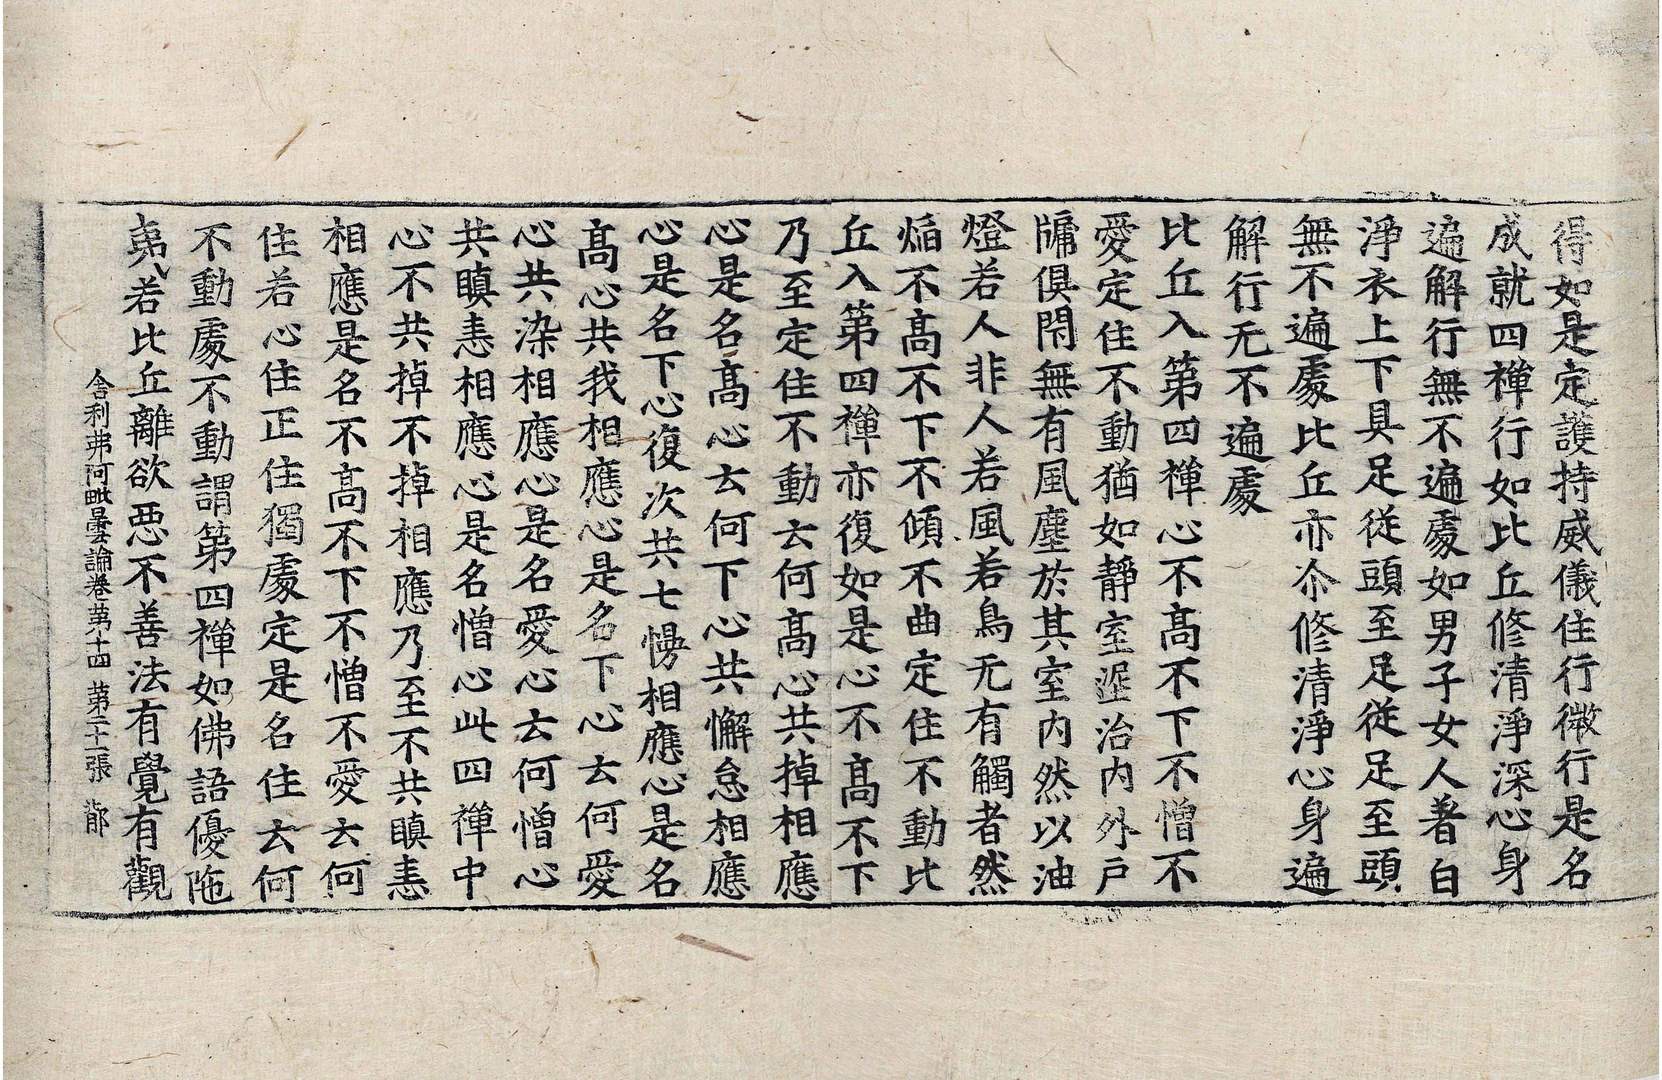 得如是定護持威儀住行微行是名
成就四禪行如比丘修清淨深心身
遍解行無不遍處如男子女人著白
淨衣上下具足從頭至足從足至頭
無不遍處比丘亦尒修清淨心身遍
解行无不遍處
比丘入第四禪心不髙不下不憎不
愛定住不動猶如靜室涯治內外戶
牗俱閇無有風塵於其室內然以油
燈若人非人若風若鳥无有觸者然
焰不髙不下不傾不曲定住不動比
丘入第四禪亦復如是心不髙不下
乃至定住不動云何髙心共掉相應
心是名髙心云何下心共懈怠相應
心是名下心復次共七慢相應心是名
髙心共我相應心是名下心云何愛
心共染相應心是名愛心云何憎心
共瞋恚相應心是名憎心此四禪中
心不共掉不掉相應乃至不共瞋恚
相應是名不髙不下不憎不愛云何
住若心住正住獨處定是名住云何
不動處不動謂第四禪如佛語優陁
夷若比丘離欲惡不善法有覺有觀
舍利弗阿毗曇論卷第十四 第二十二張